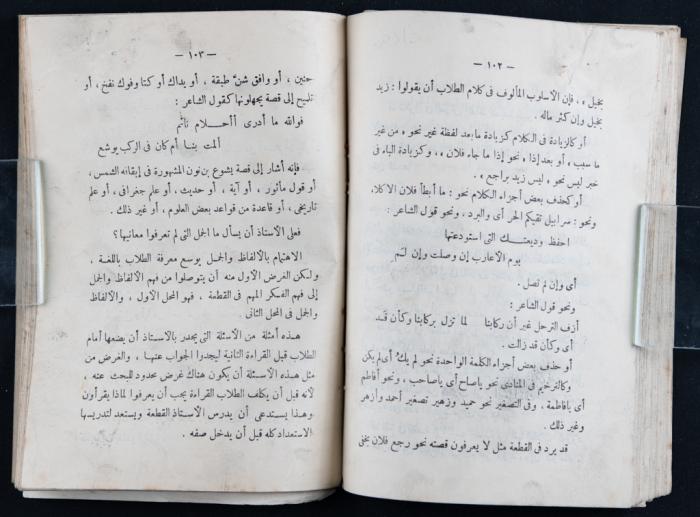 — ١٠٢ —
بخيل » ، فإن الأسلوب المألوف فى كلام الطلاب أن يقولوا : زيد
بخيل وإن كثر ماله .
أو كالزيادة فى الكلام كزيادة ما بعد لفظة غير نحو « من غير
ما سبب » أو بعد إذا « نحو إذا ما جاء فلان » ، وكزيادة الباء فى
خبر ليس نحو « ليس زيد براجع » .
أو كحذف بعض أجزاء الكلام نحو : ما أبطأ فلان الاكلا،
ونحو : سرابيل تقيكم الحر أى والبرد ، ونحو قول الشاعر :
احفظ وديعتك التى استودعتها
يوم الأعارب إن وصلت وإن لم
أى وإن لم تصل .
ونحو قول الشاعر :
أزف الترحل غير أن ركابنا لما تزل بركابنا وكأن قد
أى وكأن قد زالت .
أو حذف بعض أجزاء الكلمة الواحدة نحو لم يك أى لم يكن
وكالترخيم فى المنادى نحو ياصاح أى ياصاحب ، ونحو أفاطم
أى يافاطمة ، وفى التصغير نحو حميد وزهير تصغير أحمد وأزهر
وغير ذلك .
قد يرد فى القطعة مثل لا يعرفون قصته نحو رجع فلان بخفى
— ١٠٣ —
حنين ، أو وافق شن طبقة ، أو يداك أو كتا وفوك نفخ ، أو
تلميح إلى قصة يجهلونها كقول الشاعر :
فوالله ما أدرى أأحلام نائم
ألمت بنا أم كان فى الركب يوشع
فإنه أشار إلى قصة يشوع بن نون المشهورة فى إيقافه الشمس ،
أو قول مأثور ، أو آية ، أو حديث ، أو علم جغرافى ، أو علم
تاريخى ، أو قاعدة من قواعد بعض العلوم ، أو غير ذلك .
فعلى الأستاذ أن يسأل ما الجمل التى لم تعرفوا معانيها ؟
الاهتمام بالألفاظ والجمل يوسع معرفة الطلاب باللغة ،
ولكن الغرض الأول منه أن يتوصلوا من فهم الألفاظ والجمل
إلى فهم الفكر المهم فى القطعة ، فهو المحل الأول ، والألفاظ
والجمل فى المحل الثانى .
هذه أمثلة من الأسئلة التى يجدر بالأستاذ أن يضعها أمام
الطلاب قبل القراءة الثانية ليجدوا الجواب عنها ، والغرض من
مثل هذه الأسئلة أن يكون هناك غرض محدود للبحث عنه ،
لأنه قبل أن يكلف الطلاب القراءة يجب أن يعرفوا لماذا يقرأون
وهذا يستدعى أن يدرس الأستاذ القطعة ويستعد لتدريسها
الاستعداد كله قبل أن يدخل صفه .